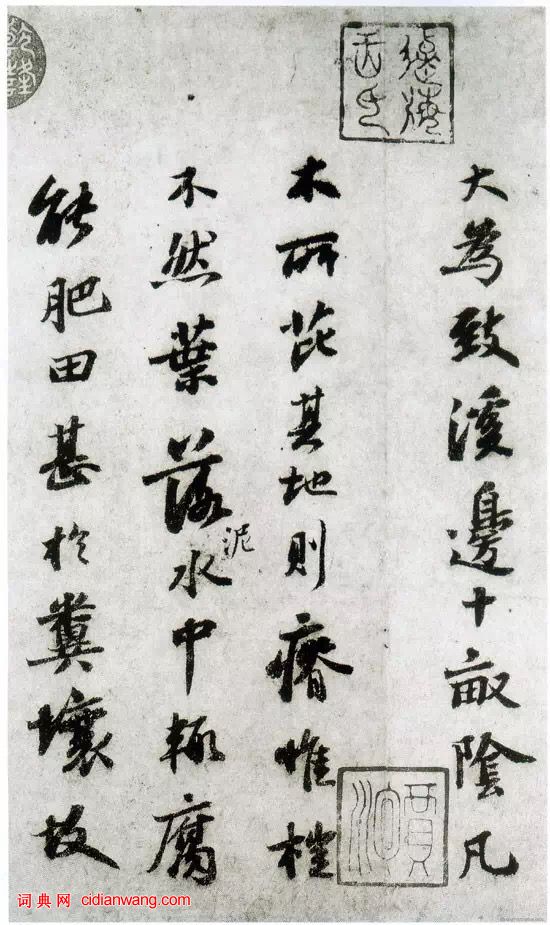 大為致溪邊十畝陰凡
木所芘其地則瘠惟榿
不然葉落泥水中輙腐
能肥田甚於糞壤故
词典网 cidianwang.com